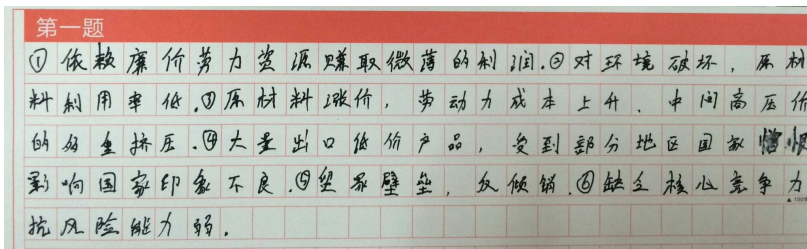 第一题
①依赖廉价劳力资源赚取微薄的利润.②对环境破坏，原材
料利用率低.③原材料涨价，劳动力成本上升、中间高压价
的多重挤压.④大量出口低价产品，受到部分地区国家
影响国家印象不良.⑤贸易壁垒，反倾销.⑥缺乏核心竞争力
▲100字
抗风险能力弱.